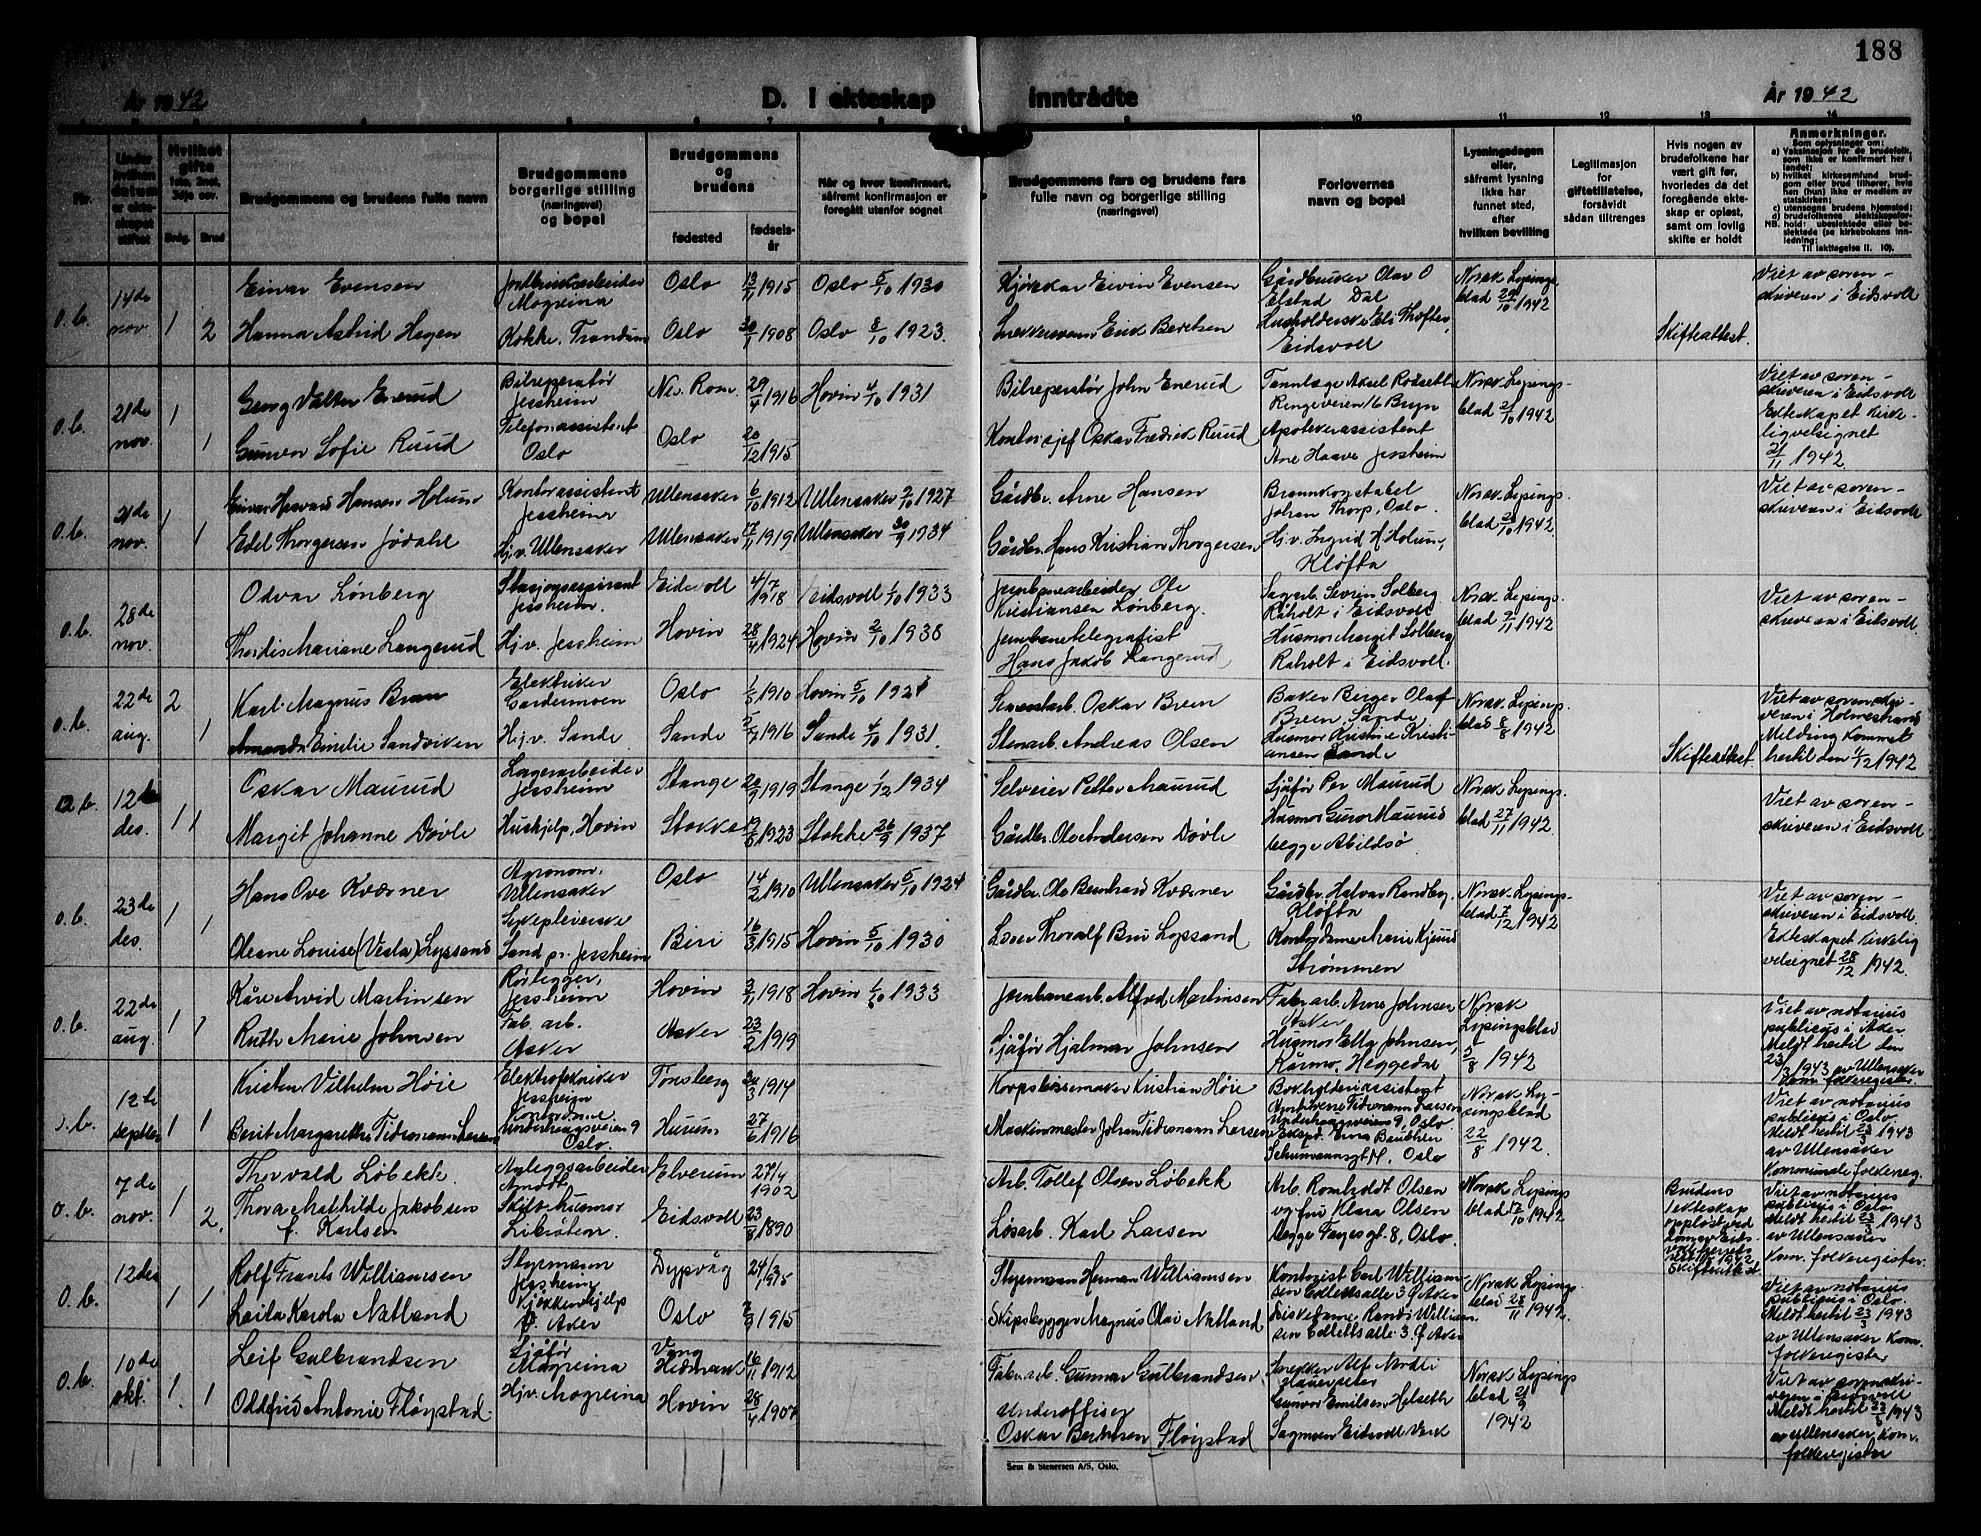 188
År 1942
D. I ekteskap inntrådte
År 1942
1 2 3 4 5 6 7 8 9 10 11 12 13 14
Nr.
Under hvilken datum er ekteskapet stiftet
Hvilket gifte
1ste, 2net, 3dje osv.
Brdg.
Brud
Brudgommens og brudens fulle navn
Brudgommens
borgerlige stilling
(næringsvei)
og bopel
Brudgommens
og
brudens
fødested
fødsels-
år
Når og hvor konfirmert,
såfremt konfirmasjon er
foregått utenfor sognet
Brudgommens fars og brudens fars
fulle navn og borgerlige stilling
(næringsvei)
Forlovernes
navn og bopel
Lysningsdagen
eller,
såfremt lysning
ikke har
funnet sted,
efter
hvilken bevilling
Legitimasjon
for
giftetillatelse,
forsåvidt
sådan tiltrenges
Hvis nogen av
brudefolkene har
vært gift før,
hvorledes da det
foregående ekte-
skap er opløst,
samt om lovlig
skifte er holdt
Anmerkninger.
Som oplysninger om:
a) Vaksinasjon for de brudefolk,
som ikke er konfirmert her i
landet;
b) hvilket kirkesamfund brud-
gom eller brud tilhører, hvis
han (hun) ikke er medlem av
statskirken;
c) utensogns brudens hjemsted;
d) brudefolkenes slektskapsfor-
NB. hold: ubeslektede eller be-
slektede (se kirkebokens inn-
ledning;
Til iakttagelse II. 10).
o.b.
14de
nov.
1
2
Einar Evensen
Hanna Astrid Hagen
Jordbruksarbeider
Mogreina
Kokke, Trandum
Oslo 13/11 1915
Oslo 30/1 1908
Oslo 5/10 1930
Oslo 8/10 1923.
Kjørekar Eivin Evensen
Snekkersvenn Erik Berntsen
Gårdbruker Olav O
Elstad Dal
Husholderske Eli Thofter,
Eidsvoll
Norsk Lysings
blad 29/10 1942
Skifteattest.
Viet av soren-
skriveren i Eidsvoll
o.b.
21de
nov.
1
1
Georg Valter Enerud
Gunvor Sofie Ruud
Bilreperatør
Jessheim
Telefonassistent
Oslo
N. Rom. 29/4 1916
Oslo 20/12 1915
Hovin 4/10 1931
Bilreperatør John Enerud
Kontorsjef Oskar Fredrik Ruud
Tannlæge Aksel Rødseth
Ringeveien 16 Bryn
Apotekerassistent
Arne Haave Jessheim
Norsk Lysings-
blad 21/10 1942
Viet av soren-
skriveren i Eidsvoll
Ekteskapet kirke-
lig velsignet
21/11 1942.
o.b.
21de
nov.
1
1
Einar Håvard Hansen Holum
Edel Thorgersen Jødahl
Kontorassistent
Jessheim
Hj.v. Ullensaker
Ullensaker 6/10 1912
Ullensaker 17/11 1919
Ullensaker 2/10 1927
Ullensaker 30/9 1934
Gårdbr. Arne Hansen
Gårdbr. Hans Kristian Thorgersen
Brannkonstabel
Johan Thorp, Oslo.
Hj.v. Ingrid H. Holum,
Kløfta
Norsk Lysings
blad 23/10 1942.
Viet av soren-
skriveren i Eidsvoll
o.b.
28de
nov.
Odvar Lønberg
Thordis Mariane Langerud
Stasjonsaspirant
Jessheim.
Hj.v. Jessheim
Eidsvoll 4/7 1918
Hovin 28/4 1924
Eidsvoll 1/10 1933
Hovin 2/10 1938
Jernbanearbeider Ole
Kristiansen Lønberg.
Jernbanetelegrafist
Hans Jakob Langerud
Sagarb. Severin Solberg
Råholt i Eidsvoll
Husmor Margit Solberg
Råholt i Eidsvoll.
Norsk Lysings.
blad 9/11 1942
Viet av soren-
skriveren i Eidsvoll.
o.b.
22de
aug.
2
1
Karl Magnus Breen
Amanda Emilie Sandviken
Elektriker
Gardermoen
Hj.v. Sande
Oslo 1/8 1910
Sande 5/7 1916
Hovin 5/10 1924
Sande 4/10 1931.
Sementarb. Oskar Breen
Stenarb. Andreas Olsen
Baker Berger Olaf
Breen, Sande
Husmor Kristine Kristi-
ansen Sande
Norsk Lysings.
blad 8/8 1942
Skifteattest
Viet av sorenskri-
veren i Holmestrand
Melding kommet
hertil den 1/12 1942
o.b.
12te
des.
1
1
Oskar Maurud
Margit Johanne Døvle
Lagerarbeider
Jessheim
Hushjelp, Hovin
Stange 20/9 1919
Stokke 19/6 1923
Stange 1/12 1934
Stokke 26/9 1937
Selveier Petter Maurud
Gårdbr. Ole Andersen Døvle
Sjåfør Per Maurud
Husmor Guror Maurud
begge Abildsø
Norsk Lysings.
blad 27/11 1942.
Viet av soren-
skriveren i Eidsvoll
o.b.
23de
des.
1
1
Hans Ove Kværner
Oleane Louise (Vesla) Lyssand
Agronom,
Ullensaker
Sykepleierske
Sand pr. Jessheim
Oslo 14/2 1910
Biri 16/3 1915
Ullensaker 5/10 1924
Hovin 5/10 1930
Gårdbr. Ole Bernhard Kværner
Lærer Thoralf Bru Lyssand
Gårdbr. Halvor Randby,
Kløfta
Kontordame Marie Kjuus
Strømmen
Norsk Lysings-
blad 7/12 1942
Viet av soren-
skriveren i Eidsvoll.
Ekteskapet kirkelig
velsignet 28/12 1942.
o.b.
22de
aug.
1
1
Kåre Arvid Martinsen
Ruth Marie Johnsen
Rørlegger,
Jessheim
Fab. arb.
Asker
Hovin 3/11 1918
Asker 23/2 1919
Hovin 1/10 1933
Jernbanearb. Alfred Martinsen
Sjåfør Hjalmar Johnsen
Fab. arb. Arne Johnsen
Asker
Husmor Elly Johnsen,
Heggedal
Norsk
Lysingsblad
5/8 1942
Viet av notarius
publicus i Asker
Meldt hertil den
23/3 1943 av Ullensaker
kom. folkeregister.
o.b.
12te
septbr
1
1
Kristen Vilhelm Høie
Berit Margarethe Tidemann Larsen
Elektrotekniker
Jessheim
Kontordame
Underhaugsveien 9
Oslo.
Tønsberg 24/3 1914
Hurum 27/6 1916
Korpsbøssemaker Kristian Høie
Maskinmester Johan Tidemann Larsen
Bokholderiassistent
Tidemann Larsen
Underhaugsveien 9, Oslo
Schumannsgt. 14, Oslo
Norsk Ly-
singsblad
22/8 1942.
Viet av notarius
publicus i Oslo
Meldt hertil 23/3 1943
av Ullensaker
Kommunale folkereg.
o.b.
7de
nov.
1
2.
Thorvald Løbekk.
Thora Mathilde Jakobsen
f. Karlsen
Anleggsarbeider
Skilt husmor
Elverum 27/4 1902
Eidsvoll 23/8 1890
Arb. Tollef Olsen Løbekk
Løsarb. Karl Larsen
Arb. Romholdt Olsen
og fru Klara Olsen
begge Fayes gt. 8, Oslo.
Norsk Lysings
blad 17/10 1942
Brudens
1 ekteskap
oppløst ved
Skifteattest.
Viet av notarius
publicus i Oslo
Meldt hertil 23/3 1943
av Ullensaker
kom. folkeregister.
o.b.
12des
1
1
Rolf Frants Williamsen
Laila Karola Natland
Styrmann
Jessheim
Kjøkkenhjelp
V. Aker
Dypvåg 24/3 1915
Oslo 2/3 1915
Styrmann Herman Williamsen
Skipsbygger Magnus Olai Natland
Kontorist Carl William-
sen 3 Ø. Aker
Diskedame Randi William-
sen 3. Ø. Aker
Norsk Lysings.
blad 28/11 1942.
Viet av notarius
publicus i Oslo.
Meldt hertil 23/3 1943
av Ullensaker kom.
folkeregister
o.b.
10de
okt.
1.
1
Leif Gulbrandsen
Oddfrid Antonie Fløystad.
Sjåfør
Mogreina
Hj.v. Mogreina
Vang
Hedmark 16/11 1912
Hovin 28/4 1907
Fabr. arb. Gunnar Gulbrandsen,
Underoffiser
Oskar Berntsen Fløystad
Snekker Alf Nordli
Gunvor Emilsen Helseth
Eidsvoll Verk
Norsk Lysings
blad 21/9
1942
Viet av sorenskri-
veren i Eidsvoll
Meldt hertil 23/3 1943
av Ullensaker kom.
folkeregister
Sem & Stenersen A/S, Oslo.